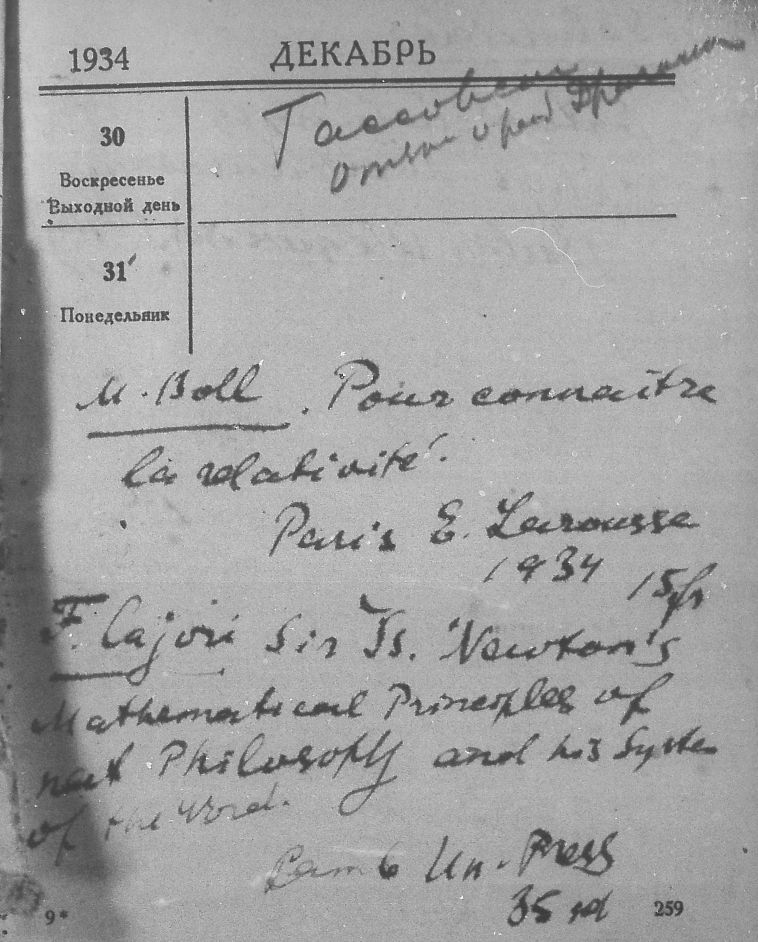 1934 ДЕКАБРЬ
30
Воскресенье
Выходной день
31
Понедельник
M. Boll. Pour connaître
la relativité.
Paris E. Larousse
1934 15 fr
F. Cajori Sir Is. Newton's
Mathematical Principles of
nat Philosophy and his System
of the Word.
Camb Un. Press
35
9* 259